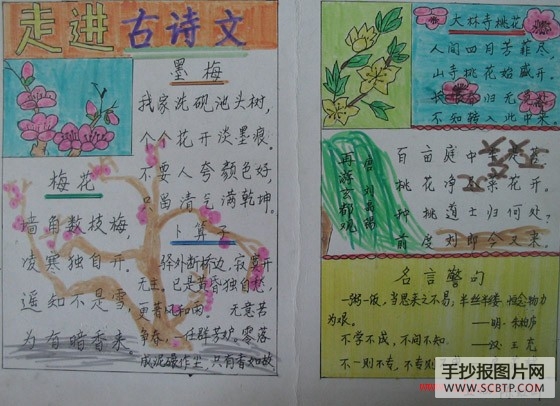 走进古诗文
墨梅
我家洗砚池头树，
个个花开淡墨痕。
不要人夸颜色好，
只留清气满乾坤。
梅花
墙角数枝梅，
凌寒独自开。
遥知不是雪，
为有暗香来。
卜算子
驿外断桥边，寂寞开
无主。已是黄昏独自愁，
更著风和雨。 无意苦
争春，一任群芳妒。零落
成泥碾作尘，只有香如故。
大林寺桃花
人间四月芳菲尽，
山寺桃花始盛开
归无
不知转入此中来。
再游玄都观
唐 刘禹锡
百亩庭中
桃花净 菜花开，
种桃道士归何处，
前度刘郎今又来。
名言警句
一粥一饭，当思来之不易，半丝半缕，恒念物力
为艰。
——明·朱柏庐
不学不成，不问不知。
——汉·王充
不一则不专，不专则
手抄报图片网
WWW.SCBTP.COM